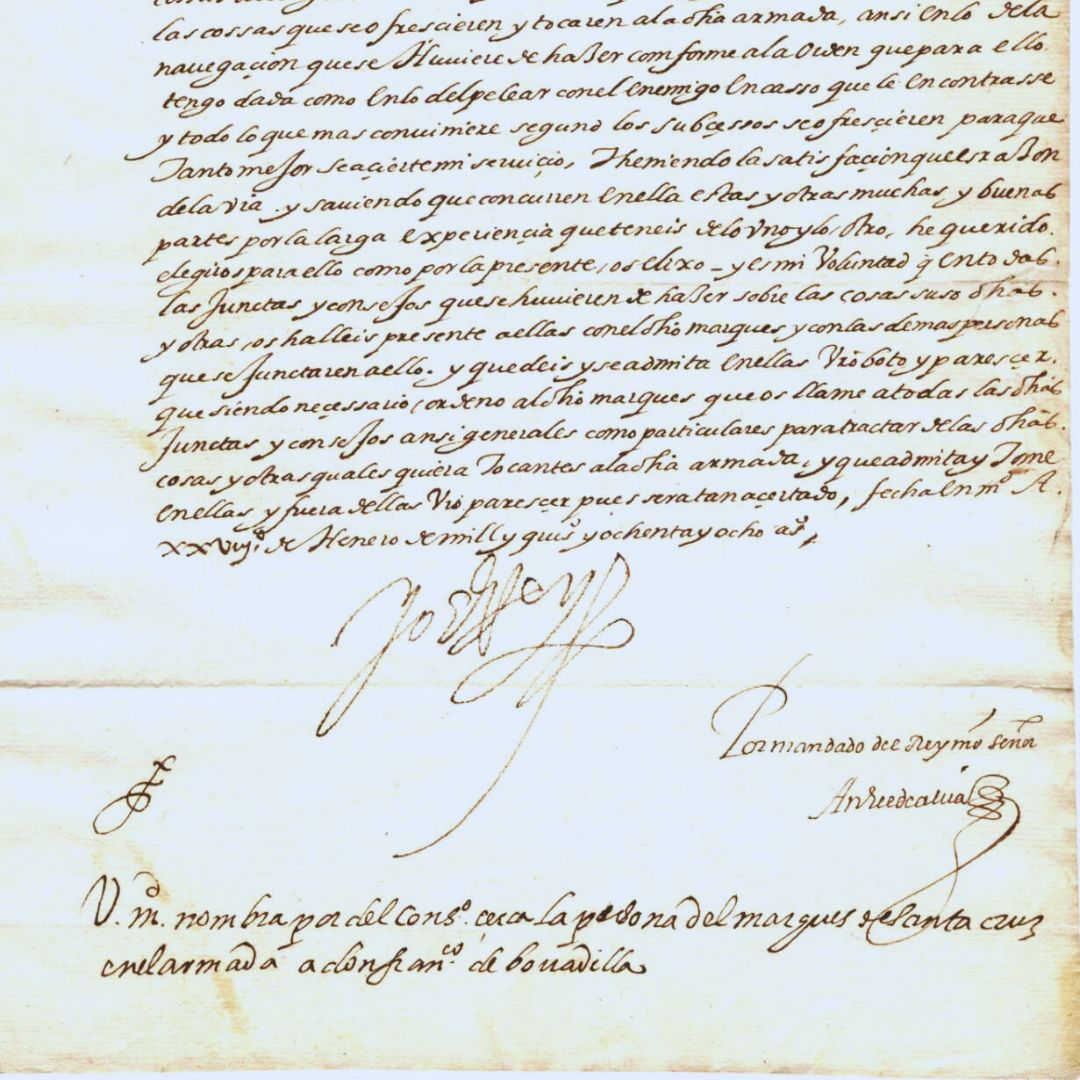 las cossas que se ofrescieren y tocaren a la dha armada, ansi en lo de la
navegaçion que se huviere de hazer comforme a la orden que para ello
tengo dada como en lo del pelear con el enemigo en casso que le encontrasse
y todo lo que mas conviniere segund los subçessos se ofresçieren para que
tanto mejor se açierte mi serviçio, Theniendo la satisfaçion que es razon
de la vra. y saviendo que concurren en ella estas y otras muchas y buenas
partes por la larga experiençia que teneis de lo uno y lo otro, he querido.
elegiros para ello como por la presente, os elixo - y es mi voluntad q en todas.
las Junctas y consejos que se huvieren de hazer sobre las cosas suso dhas.
y otras, os halleis presente a ellas con el dho marques y con las demas personas
que se Junctaren a ello. y que deis y se admita en ellas vro boto y paresçer.
que siendo neçessario, ordeno al dho marques que os llame a todas las dhas
Junctas y consejos ansi generales como particulares para tractar de las dhas.
cosas y otras quales quiera Tocantes a la dha armada, y que admita y Tome
en ellas y fuera dellas vro paresçer pues sera tan açertado, fecha en md A.
xxviijº. de Henero de mill y quis y ochenta y ocho as,
Yo el Rey
Por mandado del Rey nro señor
Andres de alva
V. md. nombra por del Consº. cerca la persona del marques de Santa cruz
en el armada a don franco. de bovadilla